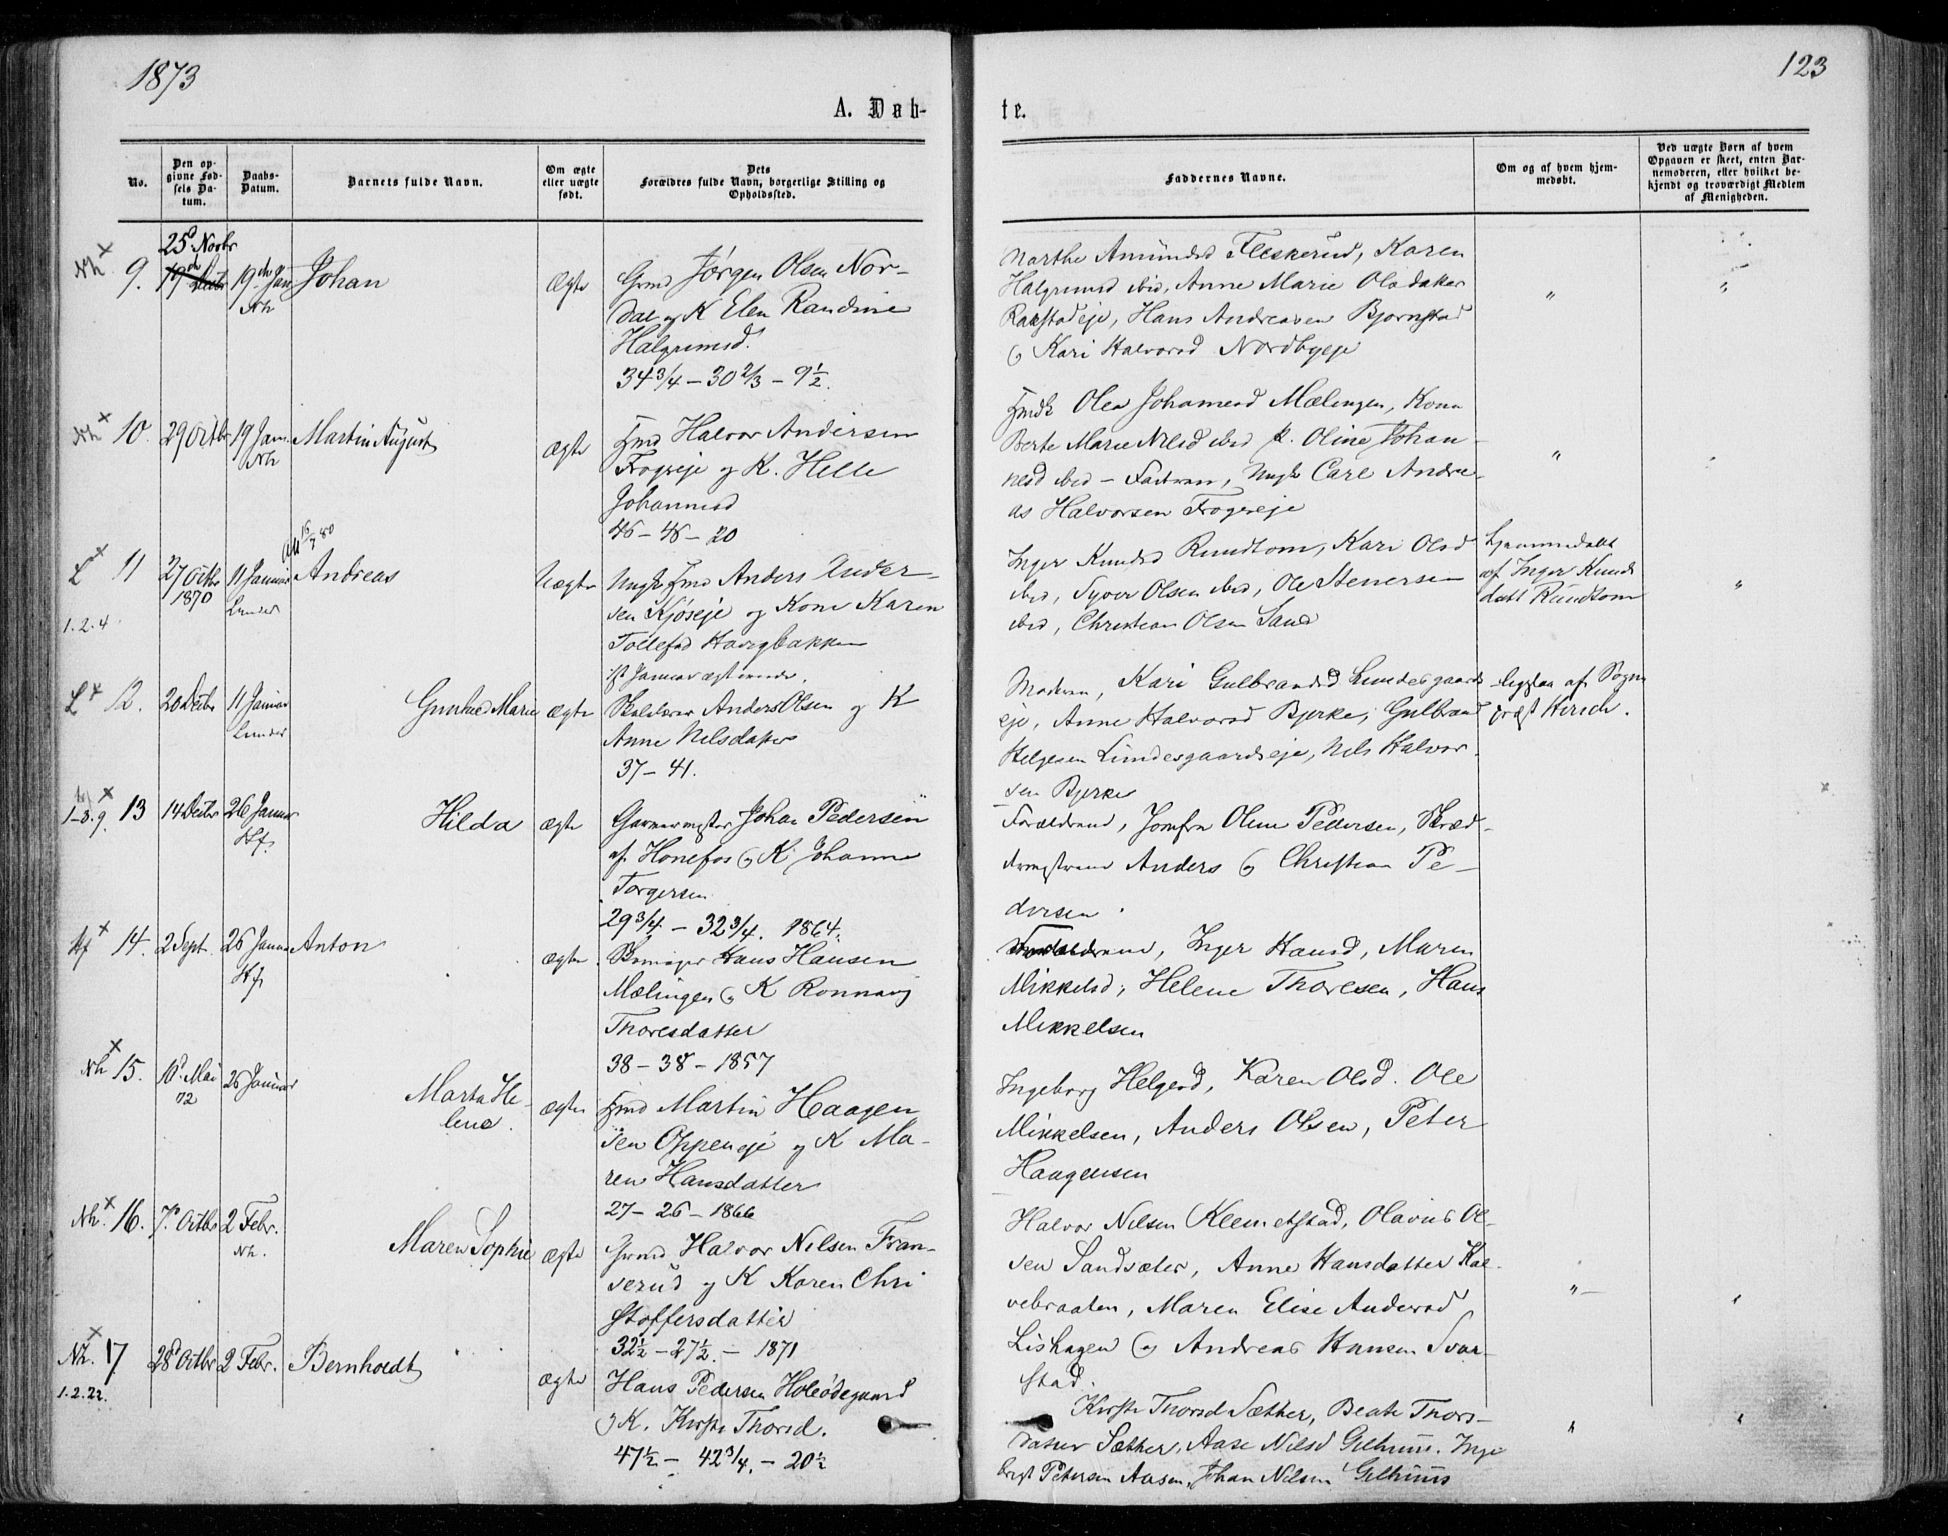 1873
123
A. Døb-
te.
No.
Den op-
givne Fød-
sels Da-
tum.
Daabs-
Datum.
Barnets fulde Navn.
Om ægte
eller uægte
født.
Dets
Forældres fulde Navn, borgerlige Stilling og
Opholdssted.
Faddernes Navne.
Om og af hvem hjem-
medøbt.
Ved uægte Børn af hvem
Opgaven er skeet, enten Bar-
nemoderen, eller hvilket be-
kjendt og troværdigt Medlem
af Menigheden.
Nh. 9.
25 Novbr
19 Decbr
19 Jan
Nh
Johan
Ægte
Grmd Jørgen Olsen Nor-
dal og K Elen Randine
Halgrimsd.
34 3/4 - 30 2/3 - 9 1/2.
Marthe Amundsd Fleskerud, Karen
Halgrimsd ibid, Anne Marie Olsdatter
Rakstadeje, Hans Andreasen Bjørnstad
og Kari Halvorsd Nordbyeje
"
"
Nh 10.
29 Octbr
19 Jan.
Nh
Martin August
ægte
Hmd Halvor Andersen
Frogeje og K. Helle
Johannesd
46 - 46 - 20
Hmdk Olea Johannesd Mælingen, Kone
Berte Marie Nilsd ibid P. Oline Johan-
nesd ibid - Faderen, Ungk Carl Andre-
as Halvorsen Frogeje
"
L 11
27 Octbr
1870
11 Januar
Lunder
1.2.4
Andreas
Uægte
Ungk Hmd Anders Ander-
sen Kjøseje og Kone Karen
Tollefsd Haugbakken
Inger Knudsd Rundtom, Kari Olsd
ibid, Syver Olsen ibid, Ole Stenersen
ibid, Christian Olsen Sand
hjemmedøbt
af Inger Knuds
datt Rundtom
"
L 12.
20 Decbr
11 Januar
Lunder
Gunhild Marie
ægte
Skolelærer Anders Olsen og K
Anne Nilsdatter
37 - 41.
Moderen, Kari Gulbrandsd Lundesgaards
eje, Anne Halvorsd Bjerke, Gulbrand
Helgesen Lundesgaardseje, Nils Halvor-
sen Bjerke
af Sogne
præst Hirsch.
1-8.9. 13
14 Decbr
26 Januar
Hf.
Hilda
ægte
Garvermester Johan Pedersen
af Honefos og K Johanne
Torgersen
29 3/4 - 32 3/4. 1864.
Forældrene, Jomfru Oline Pedersen, Skræd-
dermestrene Anders og Christian Pe-
dersen.
Hf 14.
2 Sept.
26 Januar
Hf.
Anton
ægte
Skomager Hans Hansen
Mælingen og K Ronnaug
Thoresdatter
38 - 38 - 1857
Forældrene, Inger Hansd, Maren
Mikkelsd, Helene Thoresen, Hans
Mikkelsen
Nh 15.
18 Mai
72
26 Januar
Marta He-
lene.
ægte
Hmd Martin Haagen
sen Oppeneje og K Ma-
ren Hansdatter
27 - 26 - 1866
Ingeborg Helgesd, Karen Olsd. Ole
Mikkelsen, Anders Olsen, Peter
Haagensen
Nh. 16.
7 Octbr
2 Febr.
Nh.
Maren Sophie
ægte
Grmd Halvor Nilsen Fran-
serud og K Karen Chri
stoffersdatter
32 1/2 - 27 1/2. - 1871
Halvor Nilsen Klemetstad, Olavus Ol-
sen Sandsæter, Anne Hansdatter Kal-
vebraaten, Maren Elise Andersd
Lishagen og Andreas Hansen Svar-
stad.
"
"
Nh. 17
28 Octbr
2 Febr.
1.2.22.
Bernholdt
ægte
Hans Pedersen Holeødegaard
og K. Kirsti Thorsd.
47 1/2 - 42 3/4. - 20 1/2
Kirsti Thorsd Sæther, Beate Thors-
datter Sæther, Aase Nilsd Gilhuus. Inge
brigt Petersen Aasen, Johan Nilsen Gilhuus
"
"